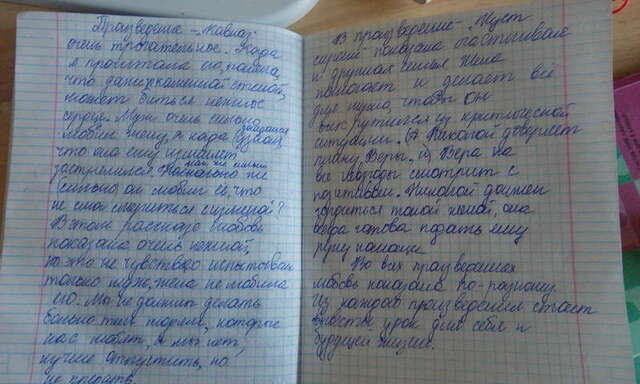 Произведение - „Кавказ"
очень трогательное. Када
я прочитала его, поняла,
что за каменной стеной,
может биться нежное
сердце. Муж очень сильно
любит жену, и када узнал,
догадался
что она ему изменяет
застрелился. Насколько же
как же сильно
(сильно) он любил её, что
не смог смириться с изменой?
В этом рассказе любовь
показана очень нежной,
но это же чувство испытывал
только муж, жена не любила
его. Мы не должны делать
больно тем людям, которые
нас любят, а мы нет.
лучше отпустить, но
не предать.
В произведение - „Куст
сирени" показана счастливая
и дружная семья. Жена
помогает и делает всё
для мужа, чтобы он
выкрутился из критической
ситуации. Николай доверяет
плану Веры. Вера на
все невзгоды смотрит с
позитивом. Николай должен
гордиться такой женой, она
всегда готова подать ему
руку помощи.
Во всех произведениях
любовь показана по-разному.
Из каждого произведения стоит
вынести урок для себя и
будущей жизни.